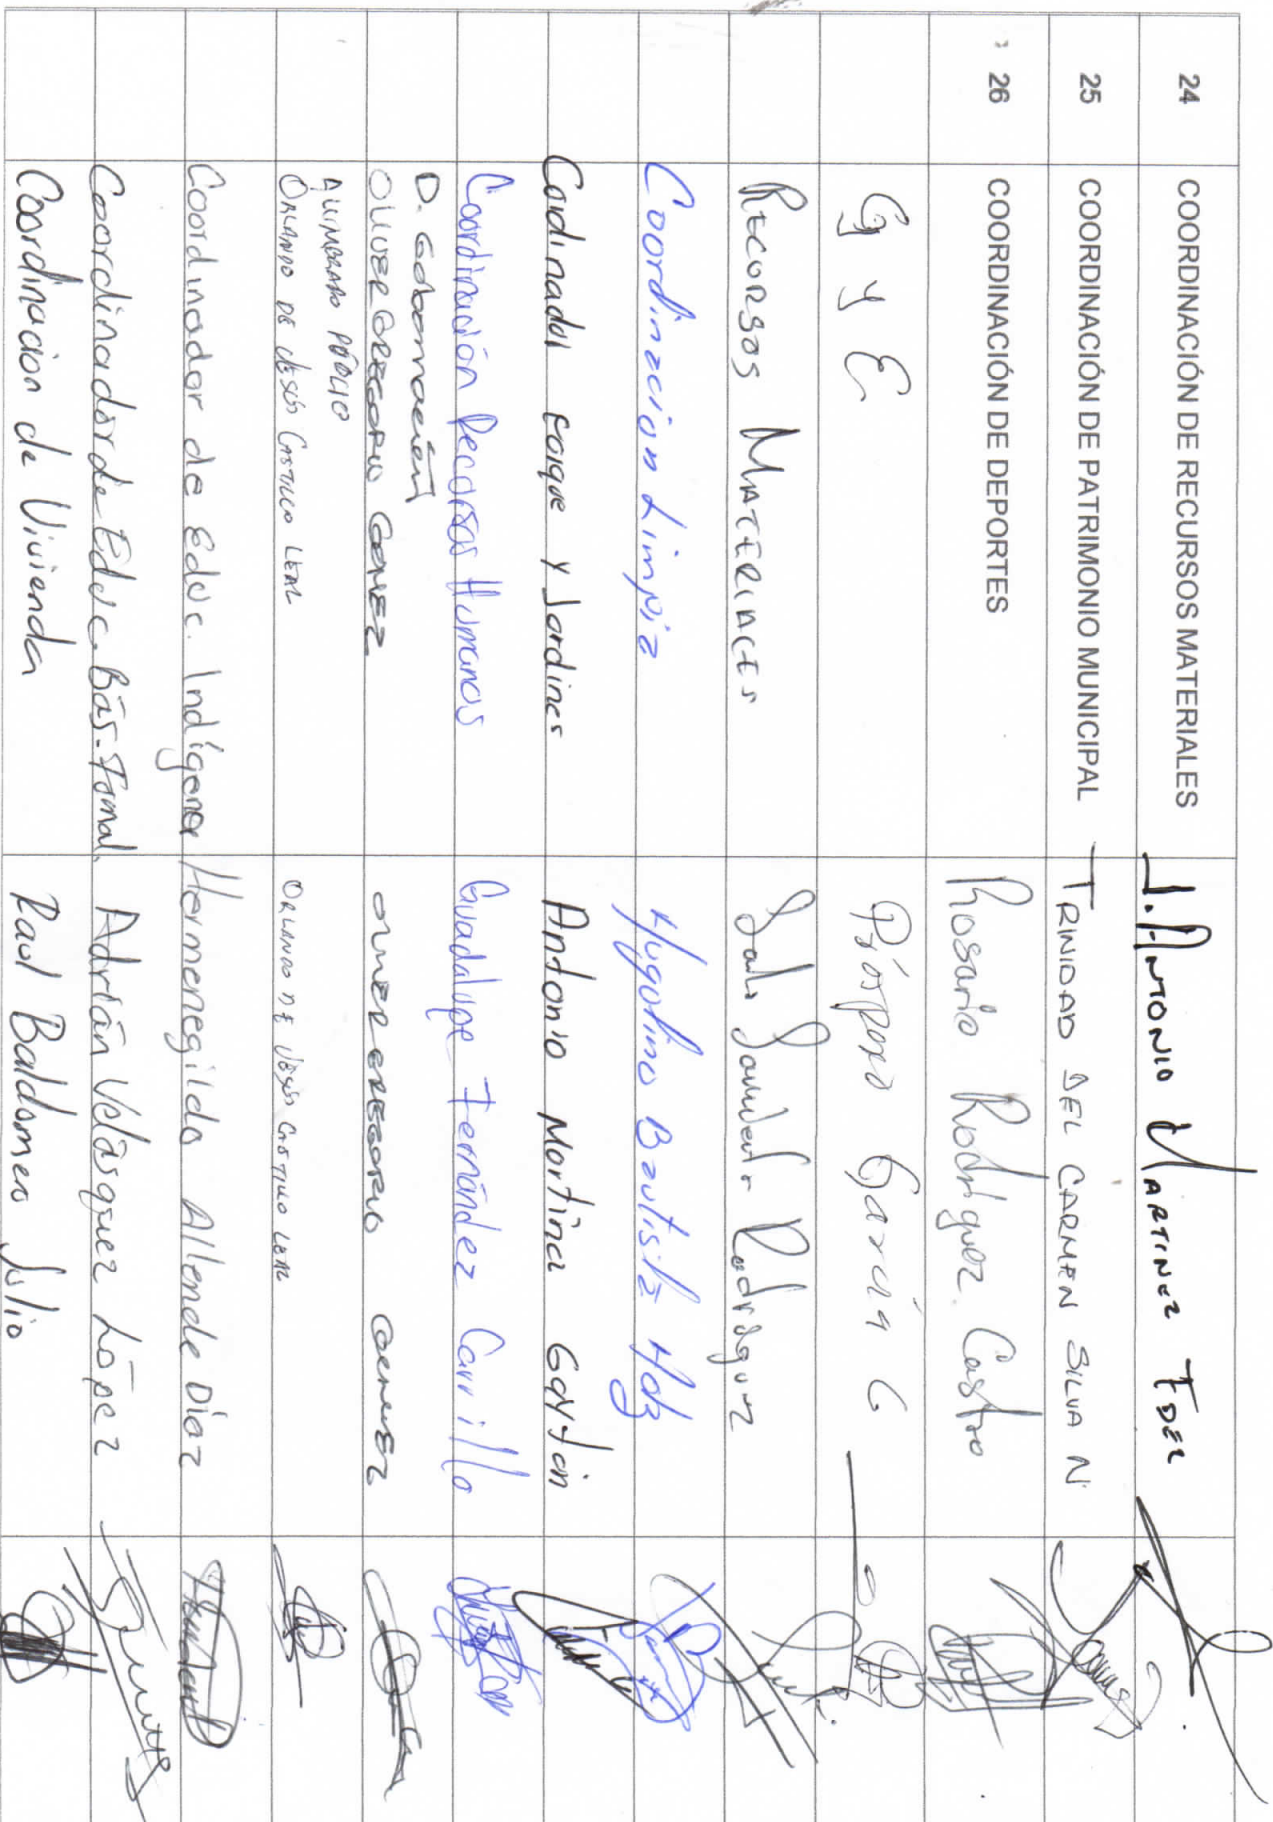 24 COORDINACIÓN DE RECURSOS MATERIALES J. ANTONIO MARTINEZ FDEZ
25 COORDINACIÓN DE PATRIMONIO MUNICIPAL TRINIDAD DEL CARMEN SILVA N
26 COORDINACIÓN DE DEPORTES Rosario Rodríguez Castro
G y E Próspero García C
RECURSOS MATERIALES Rodríguez
Coordinacion Limpia Hugolino Bautista Hdz
Cordinador Parque y Jardines Antonio Martínez Gaytan
Coordinación Recursos Humanos Guadalupe Fernández Carrillo
D. Gobernación
OLIVER GREGORIO GOMEZ OLIVER GREGORIO GOMEZ
ALUMBRADO PÚBLICO
ORLANDO DE JESÚS CASTILLO LEAL ORLANDO DE JESÚS CASTILLO LEAL
Coordinador de Educ. Indígena Hermenegildo Allende Díaz
Coordinador de Educ. Bás. Fomal. Adrián Velásquez López
Coordinacion de Vivienda Raul Baldomero Julio